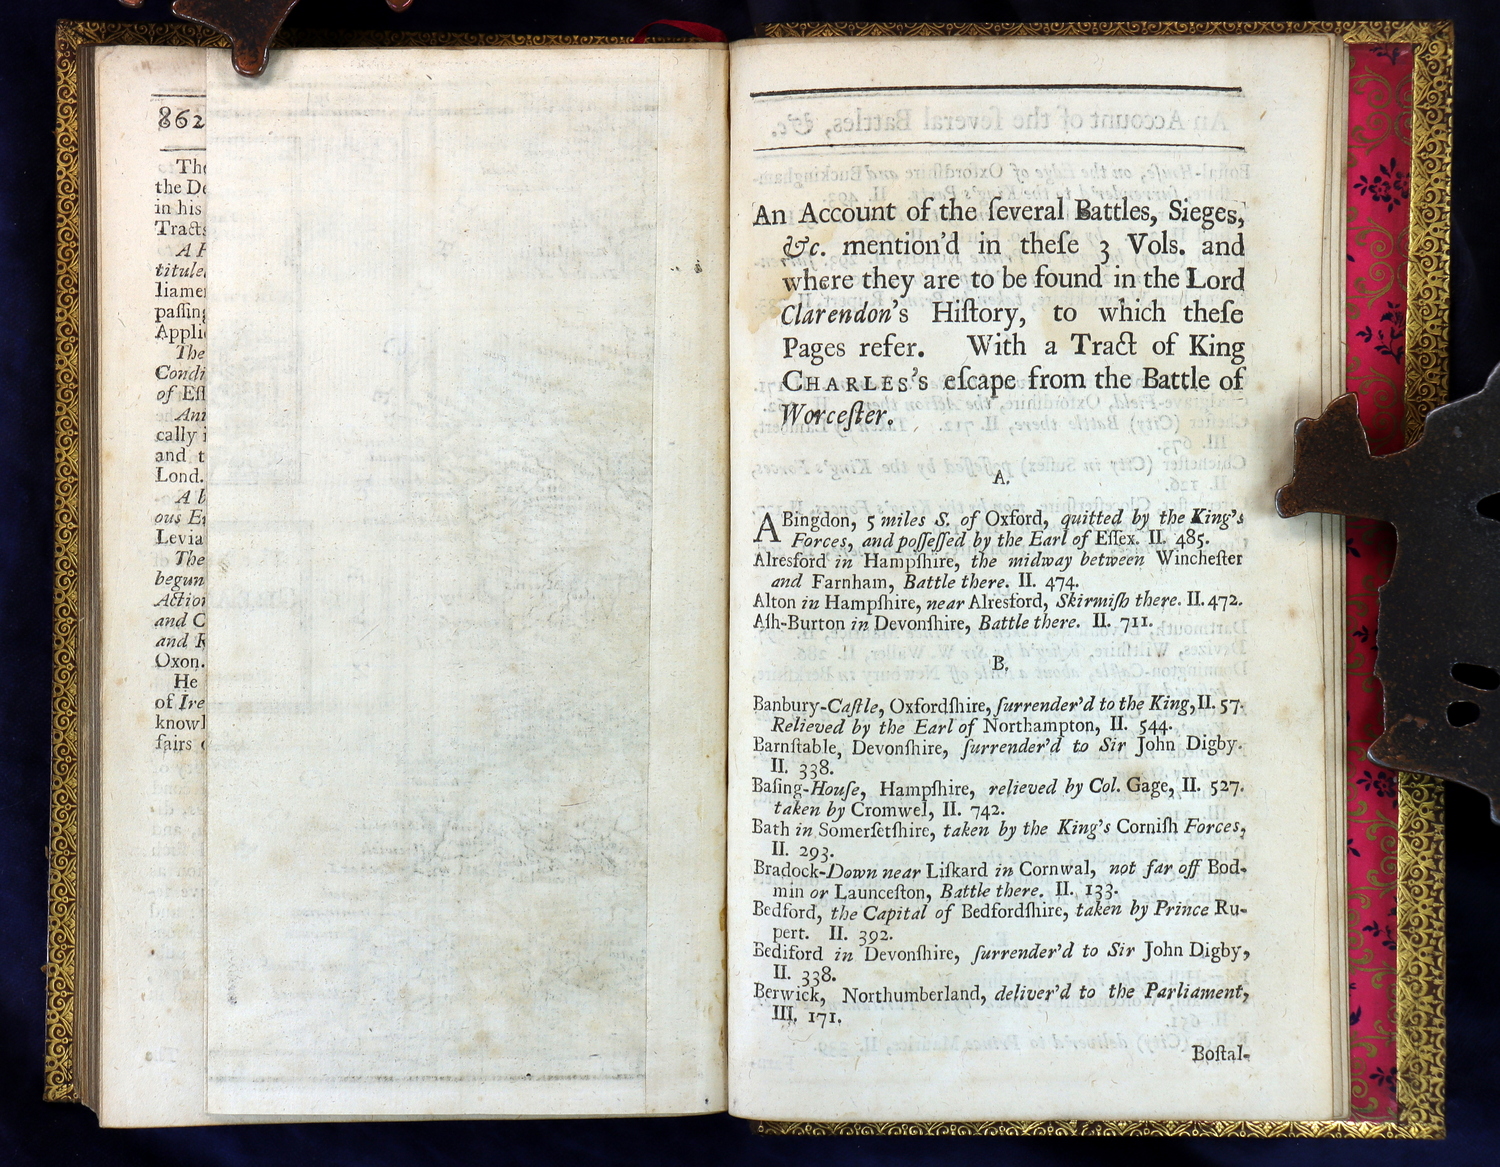 862
The
the De
in his
Tracts
A P
titule
liame
passing
Appli
The
Condi
of Ess
Ani
cally i
and t
Lond.
A b
ous E
Levia
The
begun
Action
and C
and R
Oxon.
He
of Ire
knowl
fairs
An Account of the ſeveral Battles, Sieges,
&c. mention'd in theſe 3 Vols. and
where they are to be found in the Lord
Clarendon's Hiſtory, to which theſe
Pages refer. With a Tract of King
CHARLES's eſcape from the Battle of
Worceſter.
A.
ABingdon, 5 miles S. of Oxford, quitted by the King's
Forces, and poſſeſſed by the Earl of Eſſex. II. 485.
Alresford in Hampſhire, the midway between Wincheſter
and Farnham, Battle there. II. 474.
Alton in Hampſhire, near Alresford, Skirmiſh there. II. 472.
Aſh-Burton in Devonſhire, Battle there. II. 711.
B.
Banbury-Caſtle, Oxfordſhire, ſurrender'd to the King, II. 57.
Relieved by the Earl of Northampton, II. 544.
Barnſtable, Devonſhire, ſurrender'd to Sir John Digby.
II. 338.
Baſing-Houſe, Hampſhire, relieved by Col. Gage, II. 527.
taken by Cromwel, II. 742.
Bath in Somerſetſhire, taken by the King's Corniſh Forces,
II. 293.
Bradock-Down near Liſkard in Cornwal, not far off Bod-
min or Launceſton, Battle there. II. 133.
Bedford, the Capital of Bedfordſhire, taken by Prince Ru-
pert. II. 392.
Bediford in Devonſhire, ſurrender'd to Sir John Digby,
II. 338.
Berwick, Northumberland, deliver'd to the Parliament,
III. 171.
Boſtal-